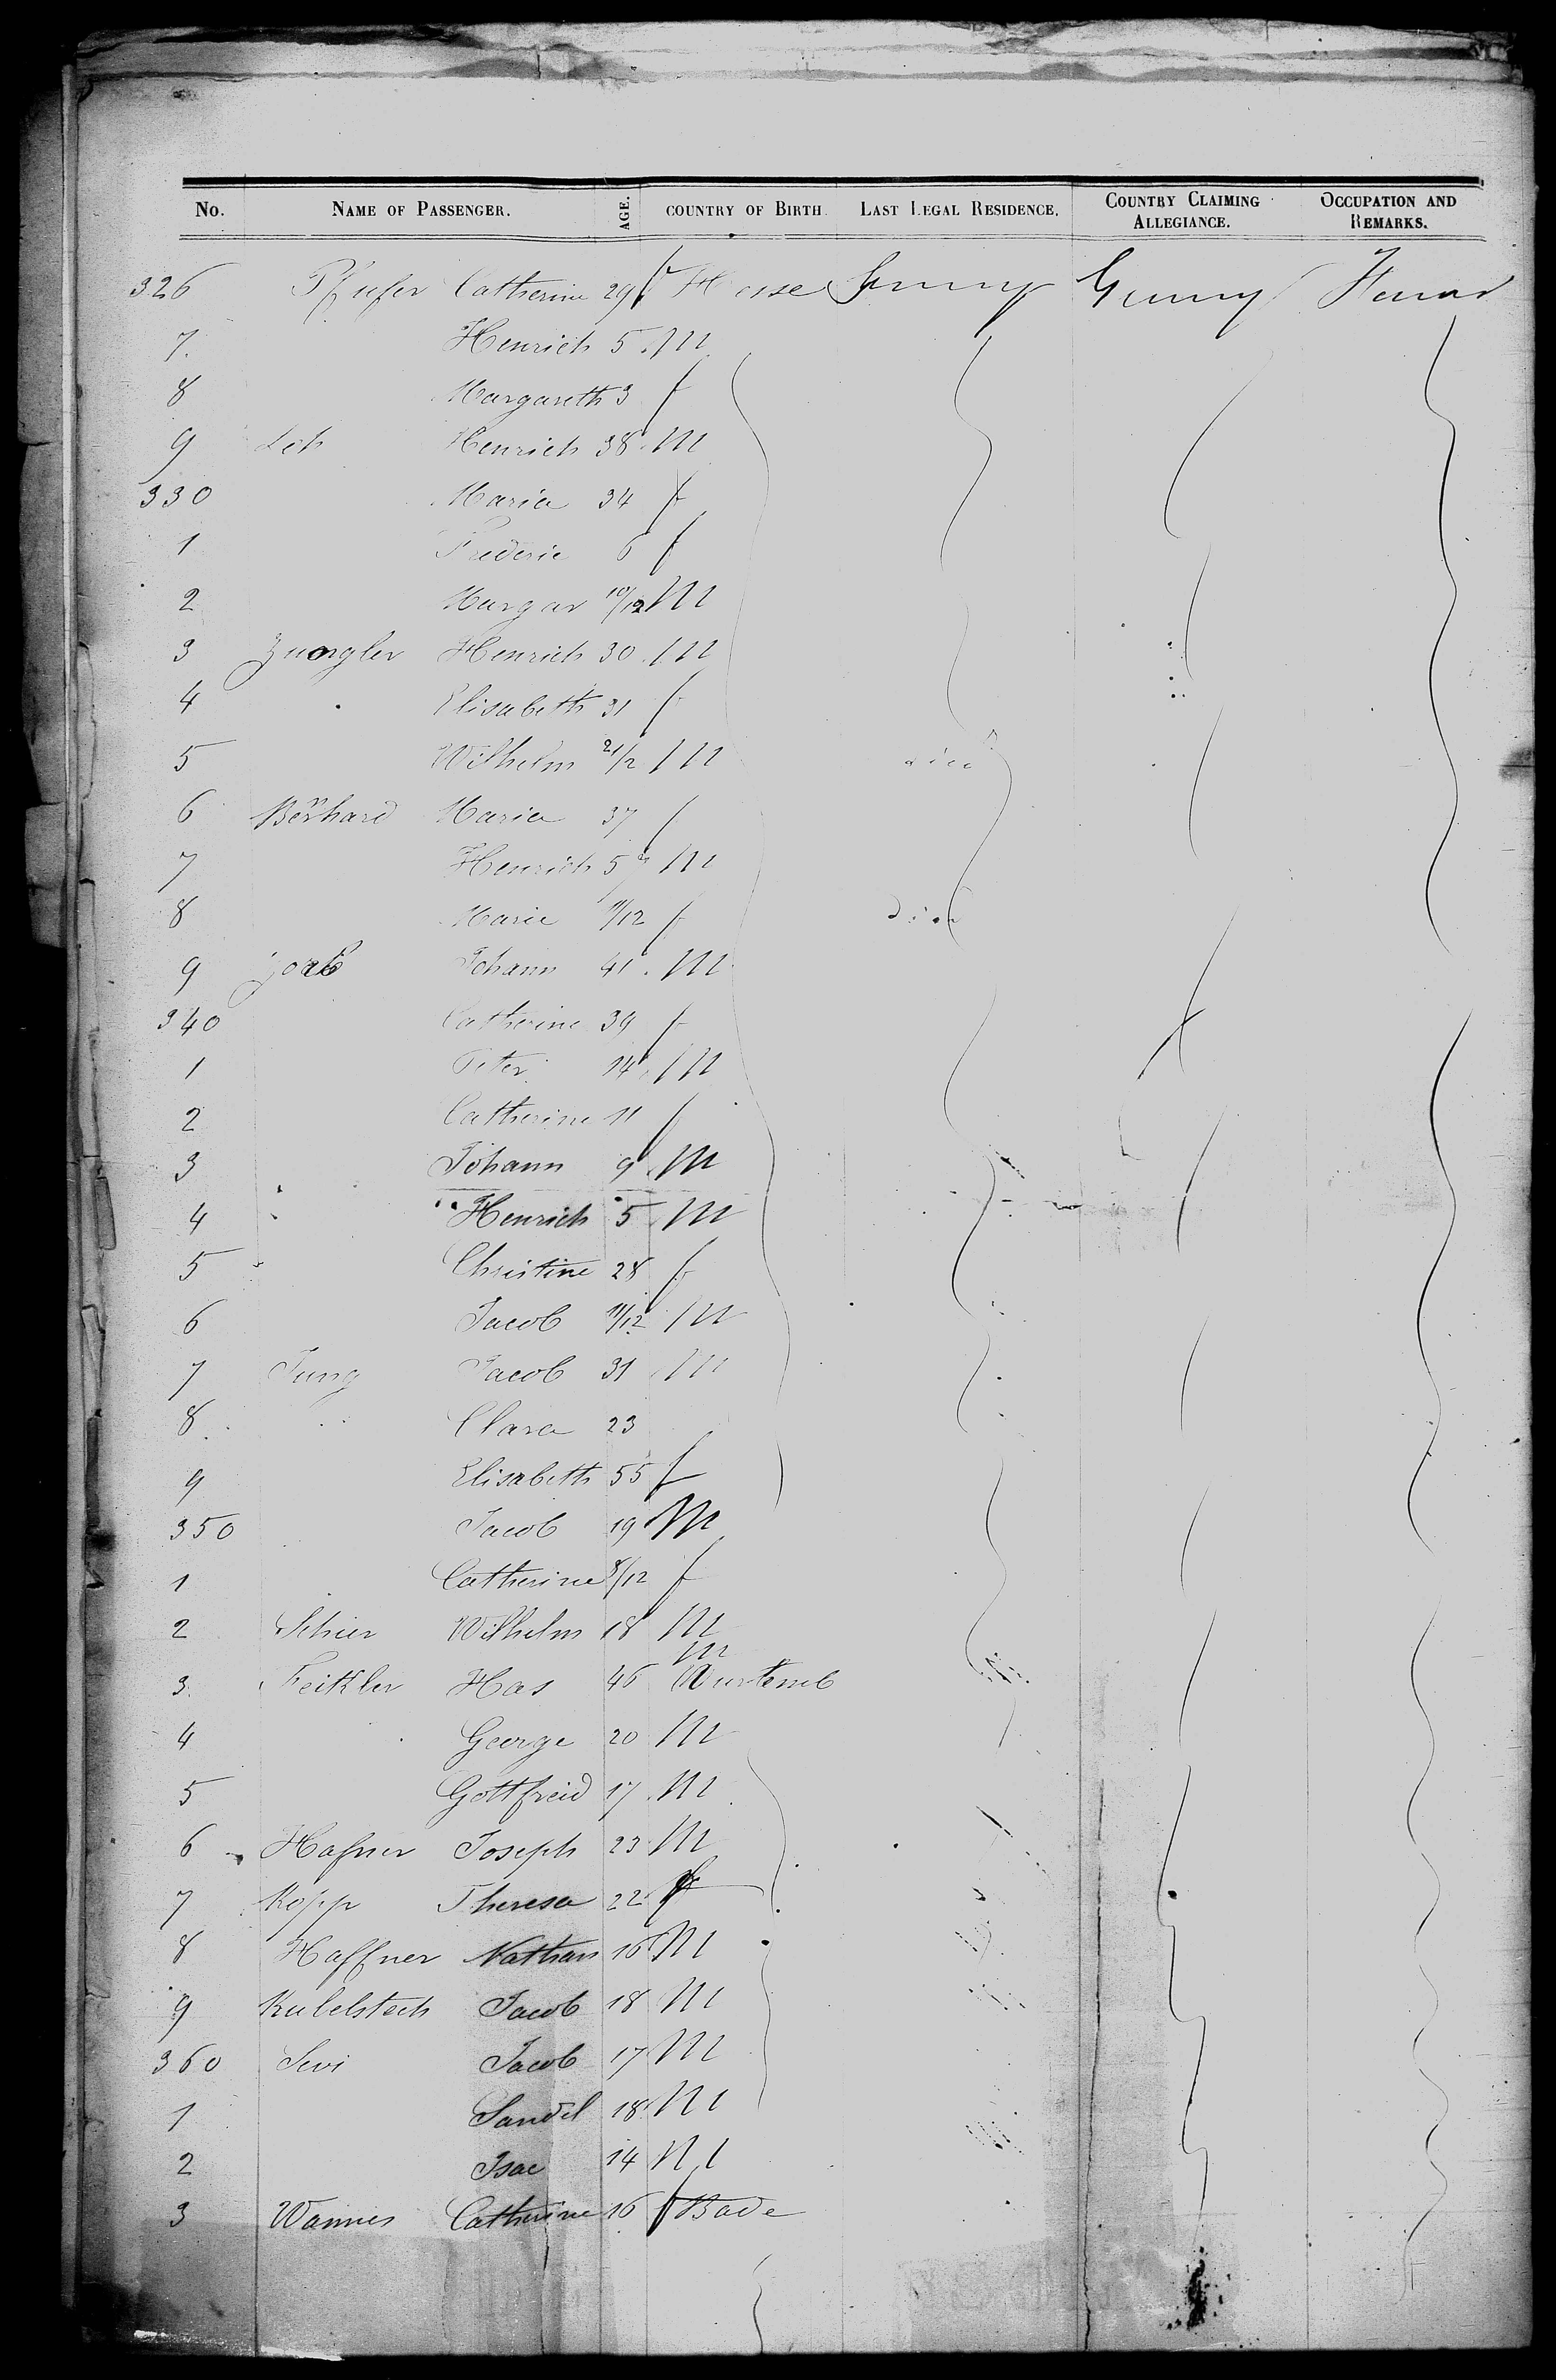 No. NAME OF PASSENGER. AGE. COUNTRY OF BIRTH. LAST LEGAL RESIDENCE. COUNTRY CLAIMING ALLEGIANCE. OCCUPATION AND REMARKS.
326 Pfufer Catherine 29 f Hesse Germany Germany
7. Henrich 5 M
8 Margareth 3 f
9 Henrich 38 M
330 Maria 34 f
1 Frederic 6 f
2 Margar 10/12 M
3 Henrich 30 M
4 Elisabeth 31 f
5 Wilhelm 21/2 M
6 Maria 37 f
7 Henrich 5 M
8 Marie 11/12 f
9 Johann 41 M
340 Catherine 39 f
1 Peter 14 M
2 Catherine 11 f
3 Johann 9 M
4 Henrich 5 M
5 Christine 28 f
6 Jacob 11/12 M
7 Jung Jacob 31 M
8 Clara 23
9 Elisabeth 55 f
350 Jacob 19 M
1 Catherine 8/12 f
2 Schier Wilhelm 18 M
3. Feikler Has 46 M Wurtemb
4 George 20 M
5 Gottfreid 17 M
6 Hafner Joseph 23 M
7 Kopp Theresa 22 f
8 Haffner Nathan 16 M
9 Kubelstech Jacob 18 M
360 Jacob 17 M
1 Sandel 18 M
2 Isac 14 M
3 Wannes Catherine 16 f Bade